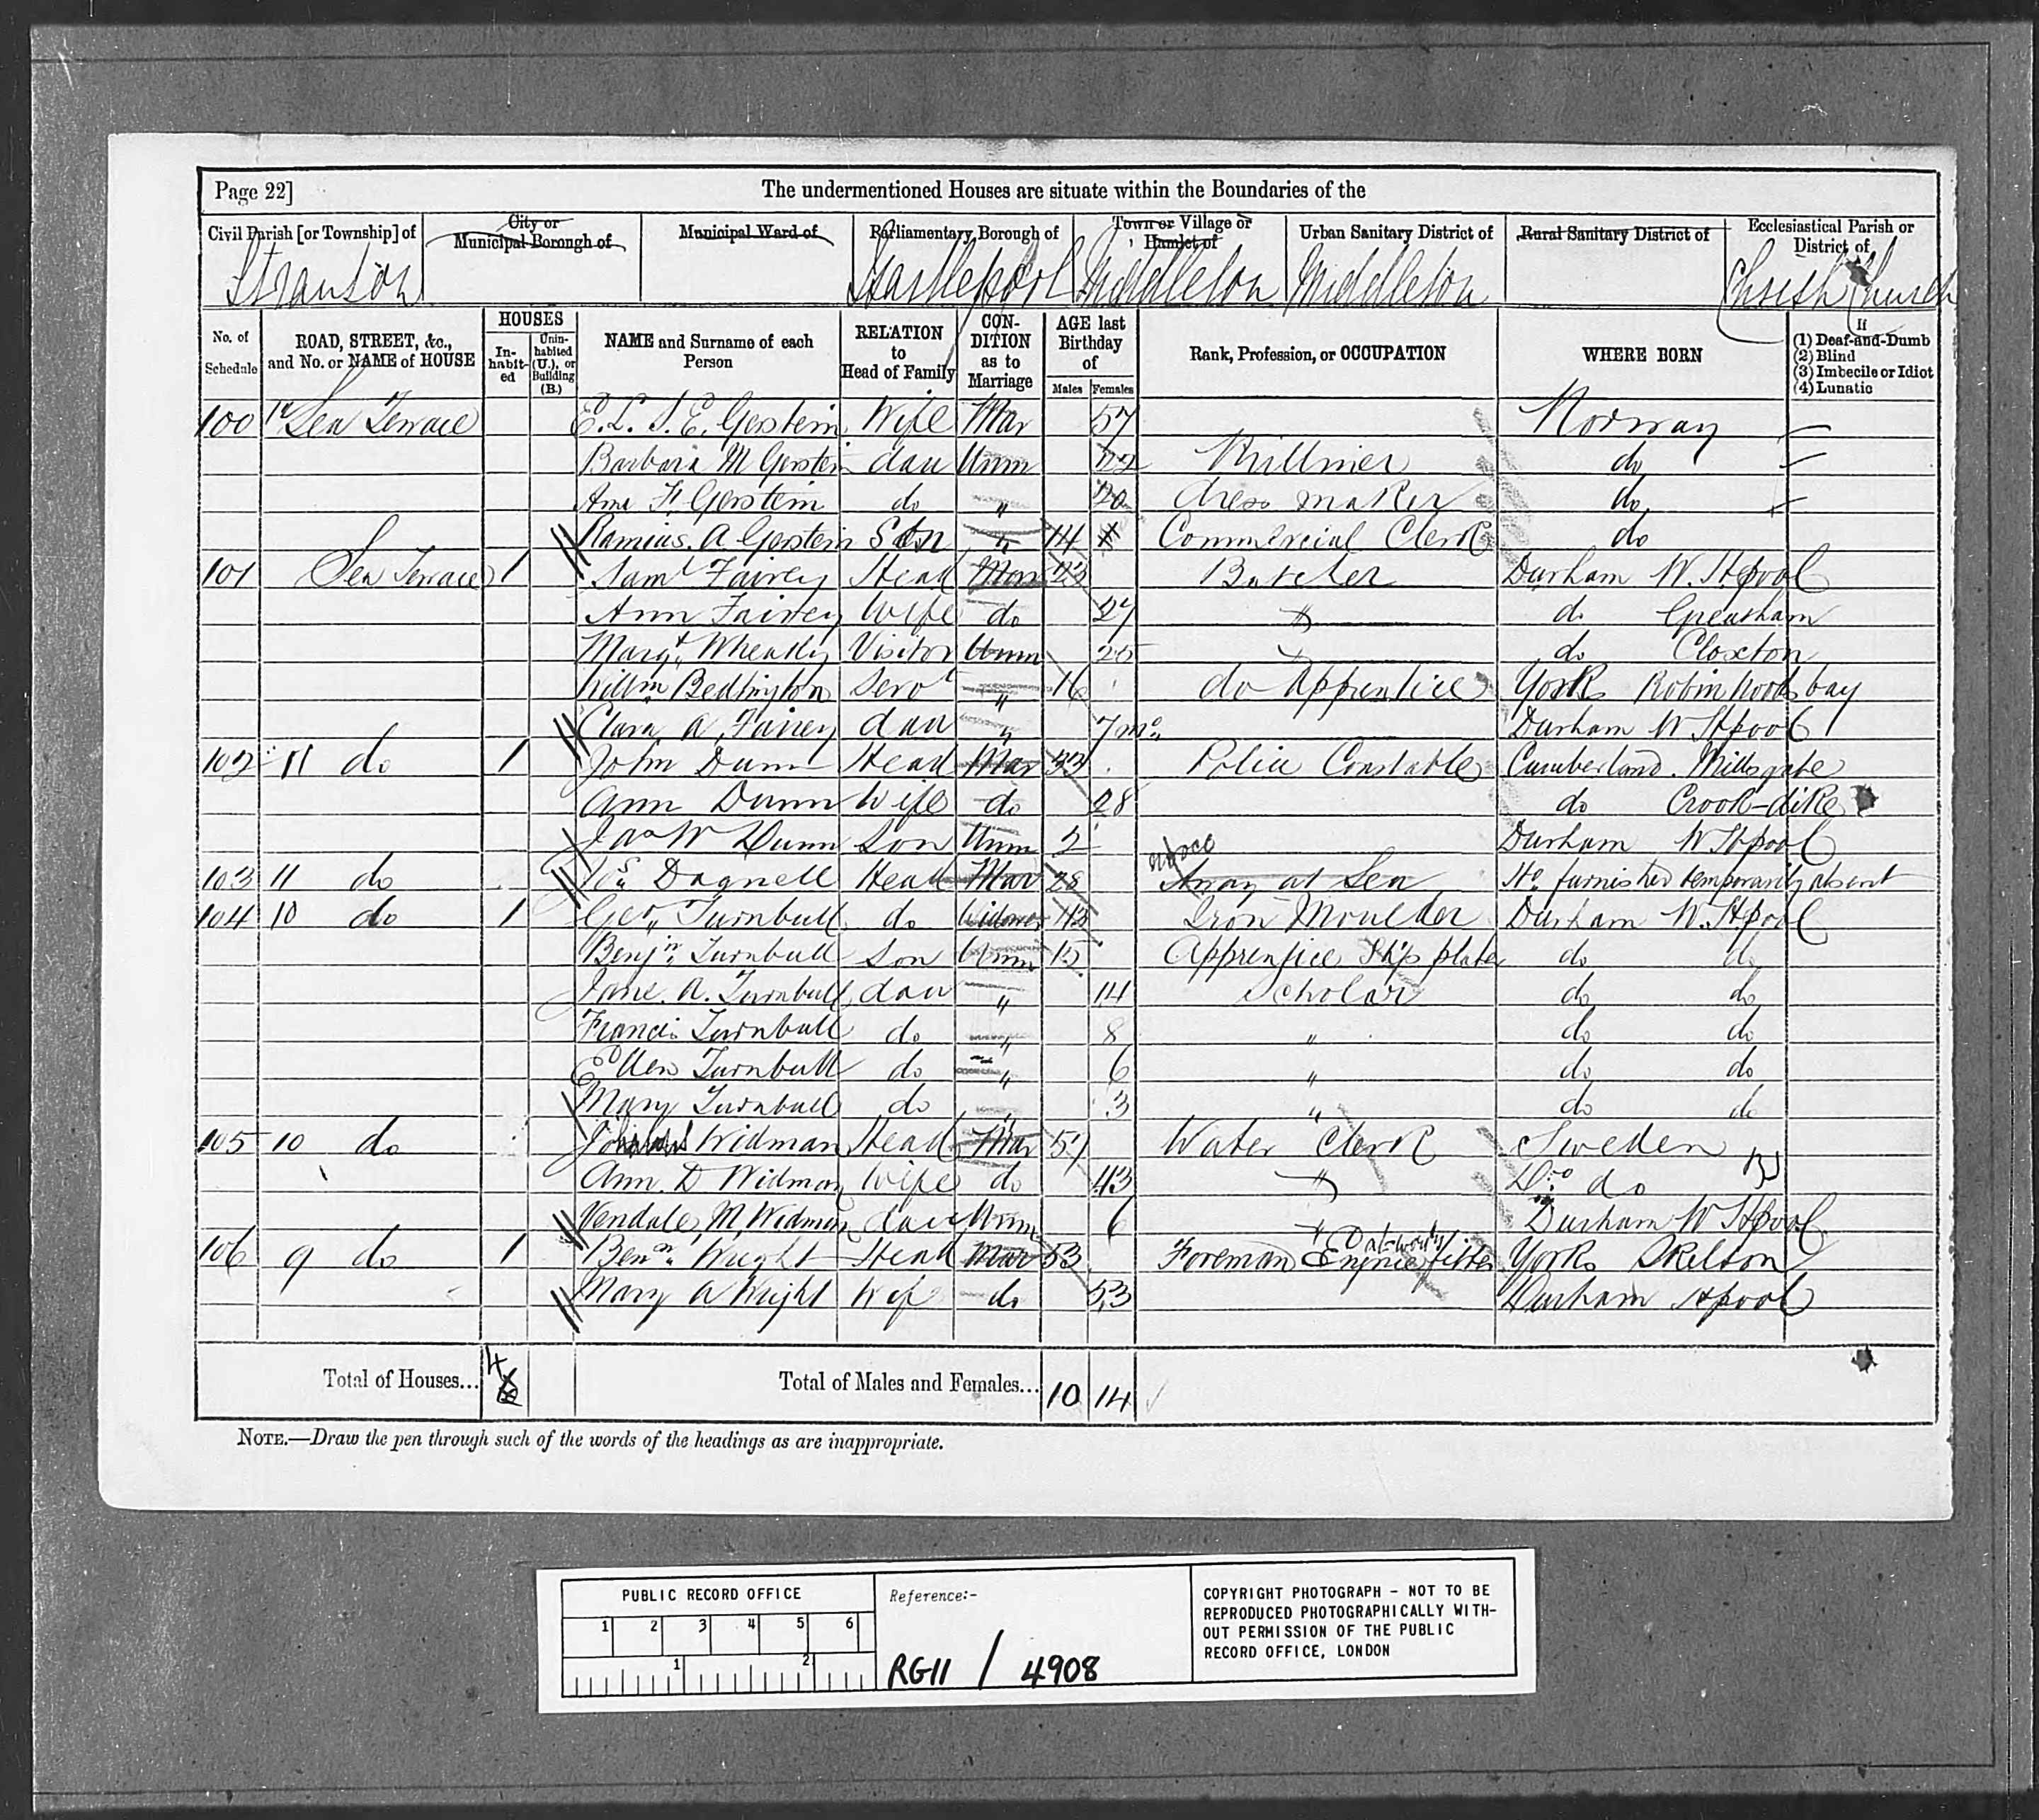 Page 22] The undermentioned Houses are situate within the Boundaries of the
Civil Parish [or Township] of City or Municipal Borough of Municipal Ward of Parliamentary Borough of Town or Village or Hamlet of Urban Sanitary District of Rural Sanitary District of Ecclesiastical Parish or District of
Stranton Hartlepool Middleton Middleton Christ Church
No. of Schedule ROAD, STREET, &c., and No. or NAME of HOUSE HOUSES In-habit-ed Unin-habited (U.), or Building (B.) NAME and Surname of each Person RELATION to Head of Family CON-DITION as to Marriage AGE last Birthday of Males Females Rank, Profession, or OCCUPATION WHERE BORN If (1) Deaf-and-Dumb (2) Blind (3) Imbecile or Idiot (4) Lunatic
100 12 Sea Terrace E. L. S. E. Gerstein Wife Mar 57 Norway
Barbara M Gerstein dau Unm 22 Milliner do
Ame F. Gerstein do " 20 dress maker do
Ramius. A. Gerstein Son " 14 Commercial Clerk do
101 Sea Terrace 1 Saml Fairey Head Mar 23 Butcher Durham W. Hpool
Ann Fairey Wife do 27 " do Greatham
Margt Wheatly Visitor Unm 25 " do Cloxton
Willm Bedlington Servt " 16 do Apprentice Yorks Robin hoods bay
Clara A. Fairey dau " 7 mo. Durham W Hpool
102 11 do 1 John Dunn Head Mar 32 Police Constable Cumberland. Millsgate
Ann Dunn Wife do 28 do Crook-dike
Jas W Dunn Son Unm 2 Durham W Hpool
103 11 do Dagnell Head Mar 28 Away at Sea No furnished temporarily absent
104 10 do 1 Geo Turnbull do Widower 43 Iron Moulder Durham W. Hpool
Benjn Turnbull Son Unm 15 Apprentice Ship plater do do
Jane. A. Turnbull dau " 14 Scholar do do
Francis Turnbull do " 8 " do do
Ellen Turnbull do " 6 " do do
Mary Turnbull do " 3 " do do
105 10 do Widman Head Mar 57 Water Clerk Sweden
Ann. D Widman Wife do 43 " Do do
Vendale, M, Widman dau Unm 6 Durham W Hpool
106 9 do 1 Benn Wright Head Mar 53 Foreman Engine fitter Yorks Skelton
Mary A Wright Wife do 53 Durham Hpool
Total of Houses... 4 Total of Males and Females... 10 14
NOTE.—Draw the pen through such of the words of the headings as are inappropriate.
PUBLIC RECORD OFFICE
1 2 3 4 5 6
1 2
Reference:-
RG11 / 4908
COPYRIGHT PHOTOGRAPH - NOT TO BE
REPRODUCED PHOTOGRAPHICALLY WITH-
OUT PERMISSION OF THE PUBLIC
RECORD OFFICE, LONDON